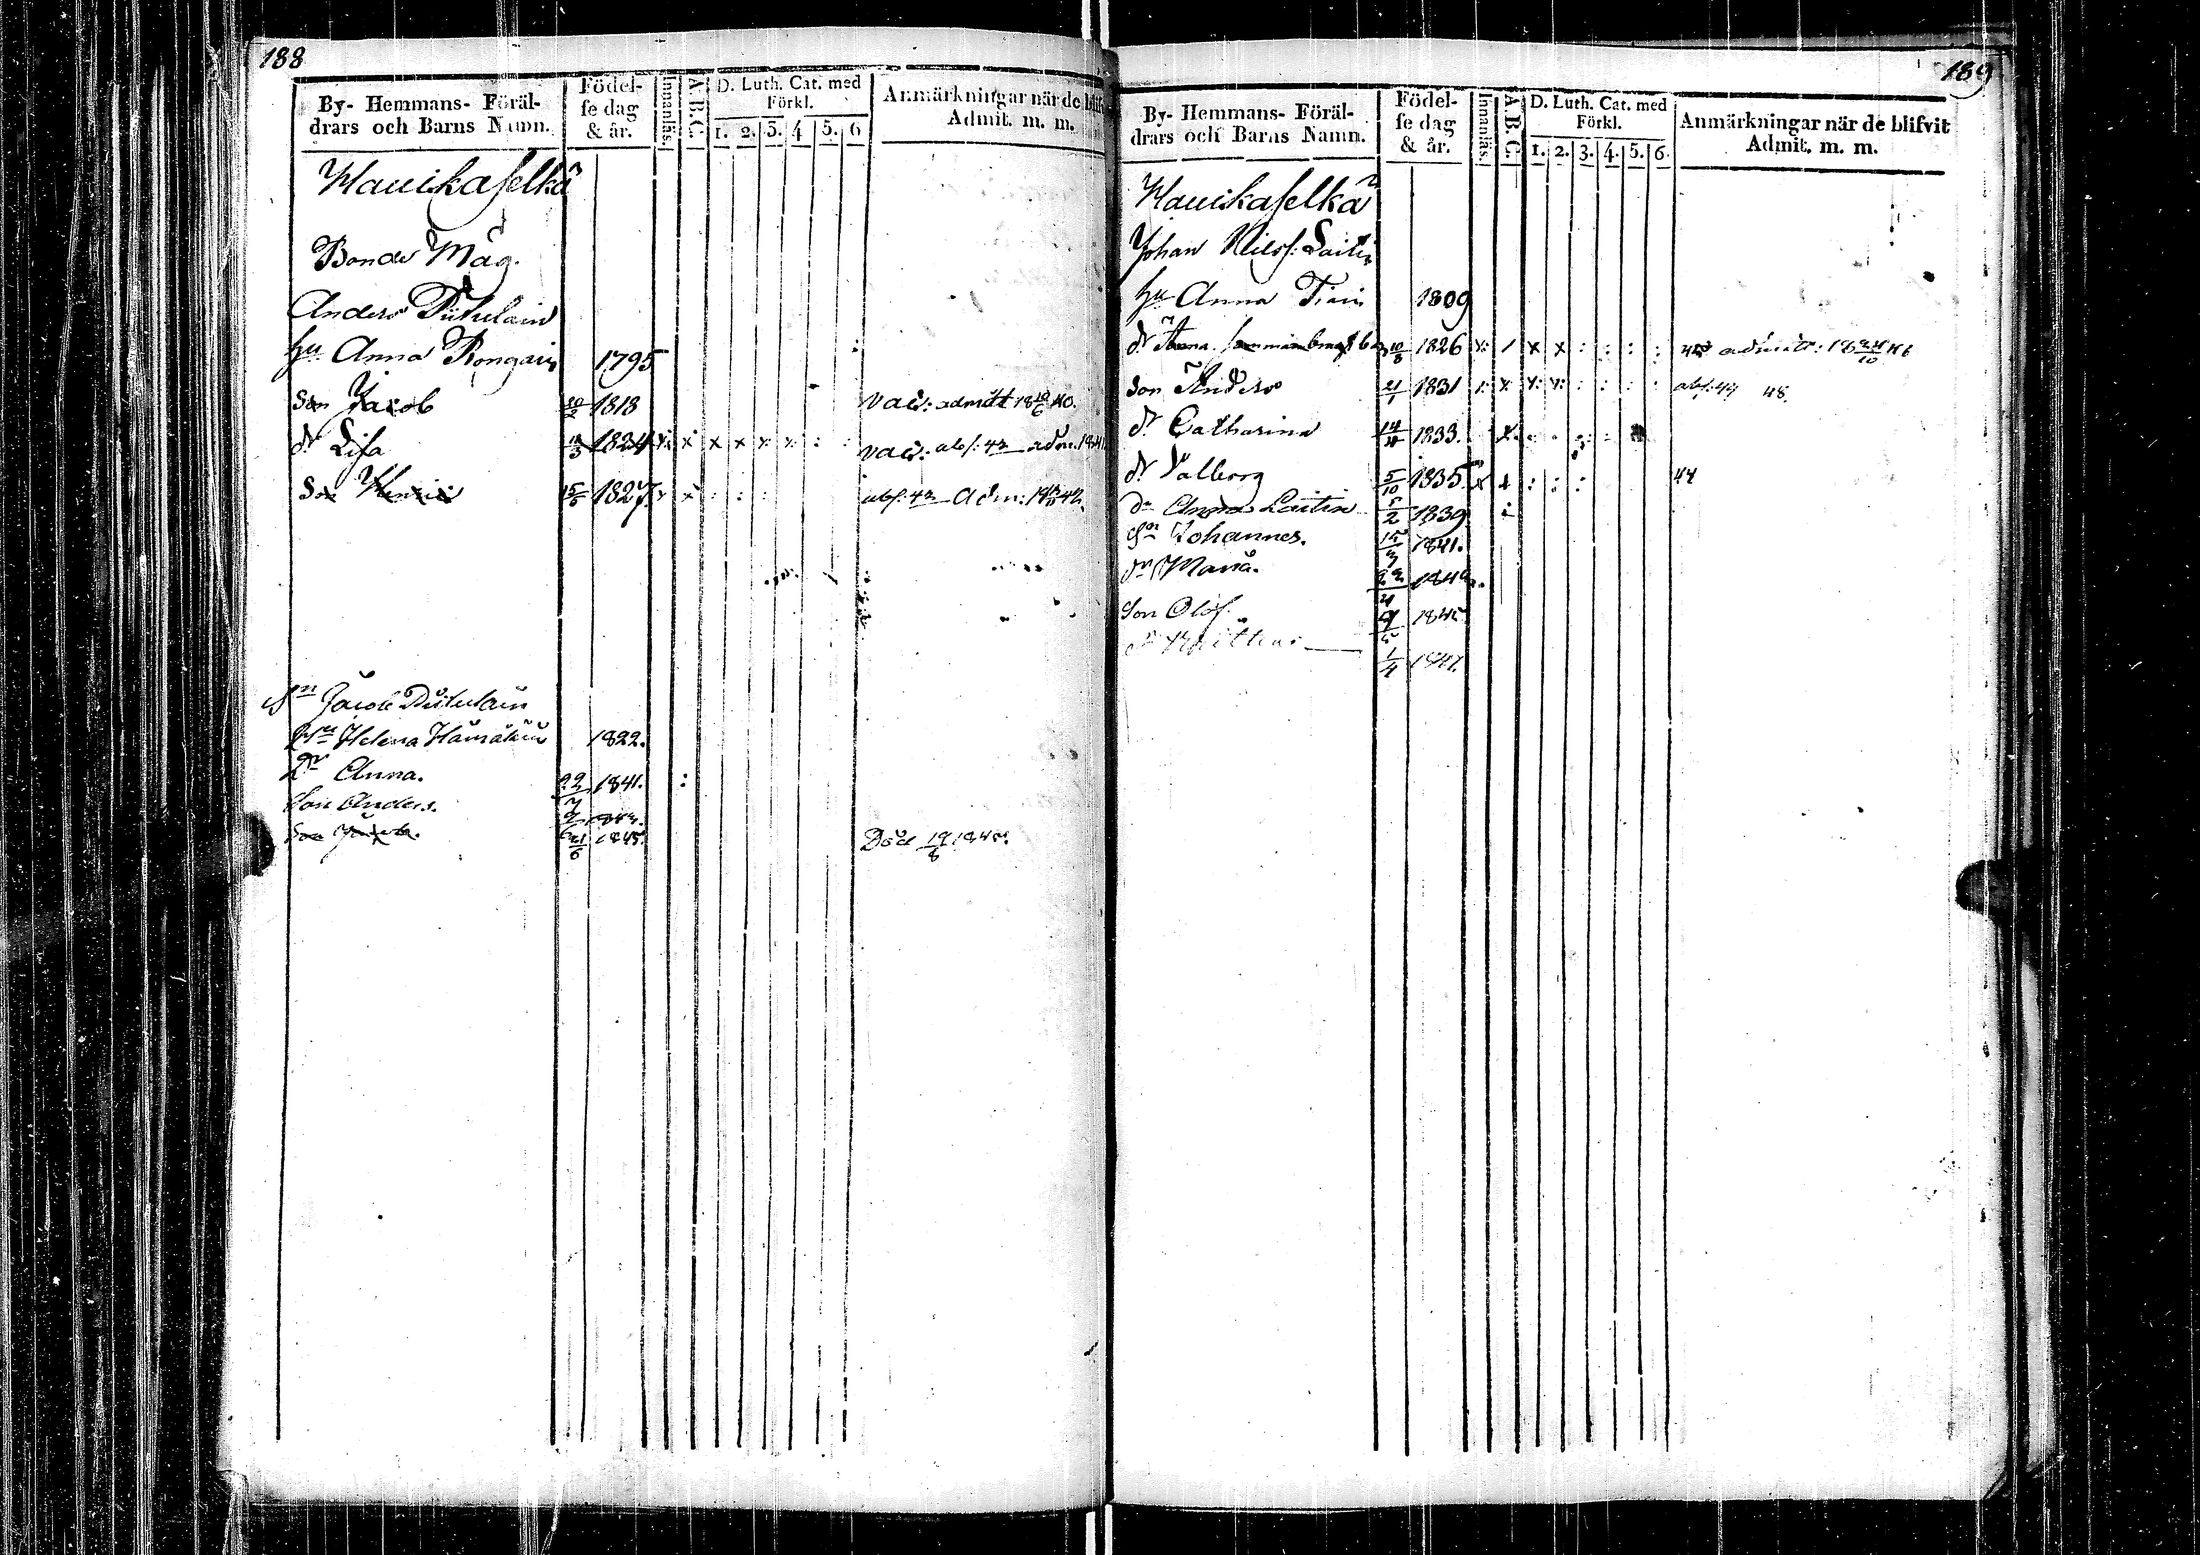 188
By- Hemmans- Föräl-
drars och Barns Namn.
Födel-
se dag
& år.
Innanläs.
A.B.C.
D. Luth. Cat. med
Förkl.
1. 2. 3. 4 5. 6
Anmärkningar när de blifv
Admit. m. m.
Hauikaselkä
Bonde Måg.
Anders
Hu Anna Rongain 1795
Son Jacob 20/2 1818 vac: admitt 18 40.
dr Lisa 13/3 1824 x: x x x x x : : vac: abs: 42 adm. 1841
Son Henric 15/8 1827 x x : : : abs: 42 Adm: 42.
Sn Jacob
Hu Helena 1822.
Dr Anna. 22/7 1841. :
Son Anders. 9
Son Jacob. 21/6 1845. Död 19/8 1845.
189
By- Hemmans- Föräl-
drars och Barns Namn.
Födel-
se dag
& år.
Innanläs.
A.B.C.
D. Luth. Cat. med
Förkl.
1. 2. 3. 4. 5. 6.
Anmärkningar när de blifvit
Admit. m. m.
Hauikaselkä
Johan Nilss: Laitin
Hu Anna 1809
dr Anna 10/8 1826 x: / x x : : : : admitt: 18 46
Son Anders 21/1 1831 x: x x: x: : : : : abs: 44 48.
dr Catharina 1833.
dr Valborg 5/10 1835 x x : : : 44
dr Anna Laitin 5/2 1839 :
Sn Johannes. 1841.
dr Maria.
Son Olof. 1845
1/4 1847.